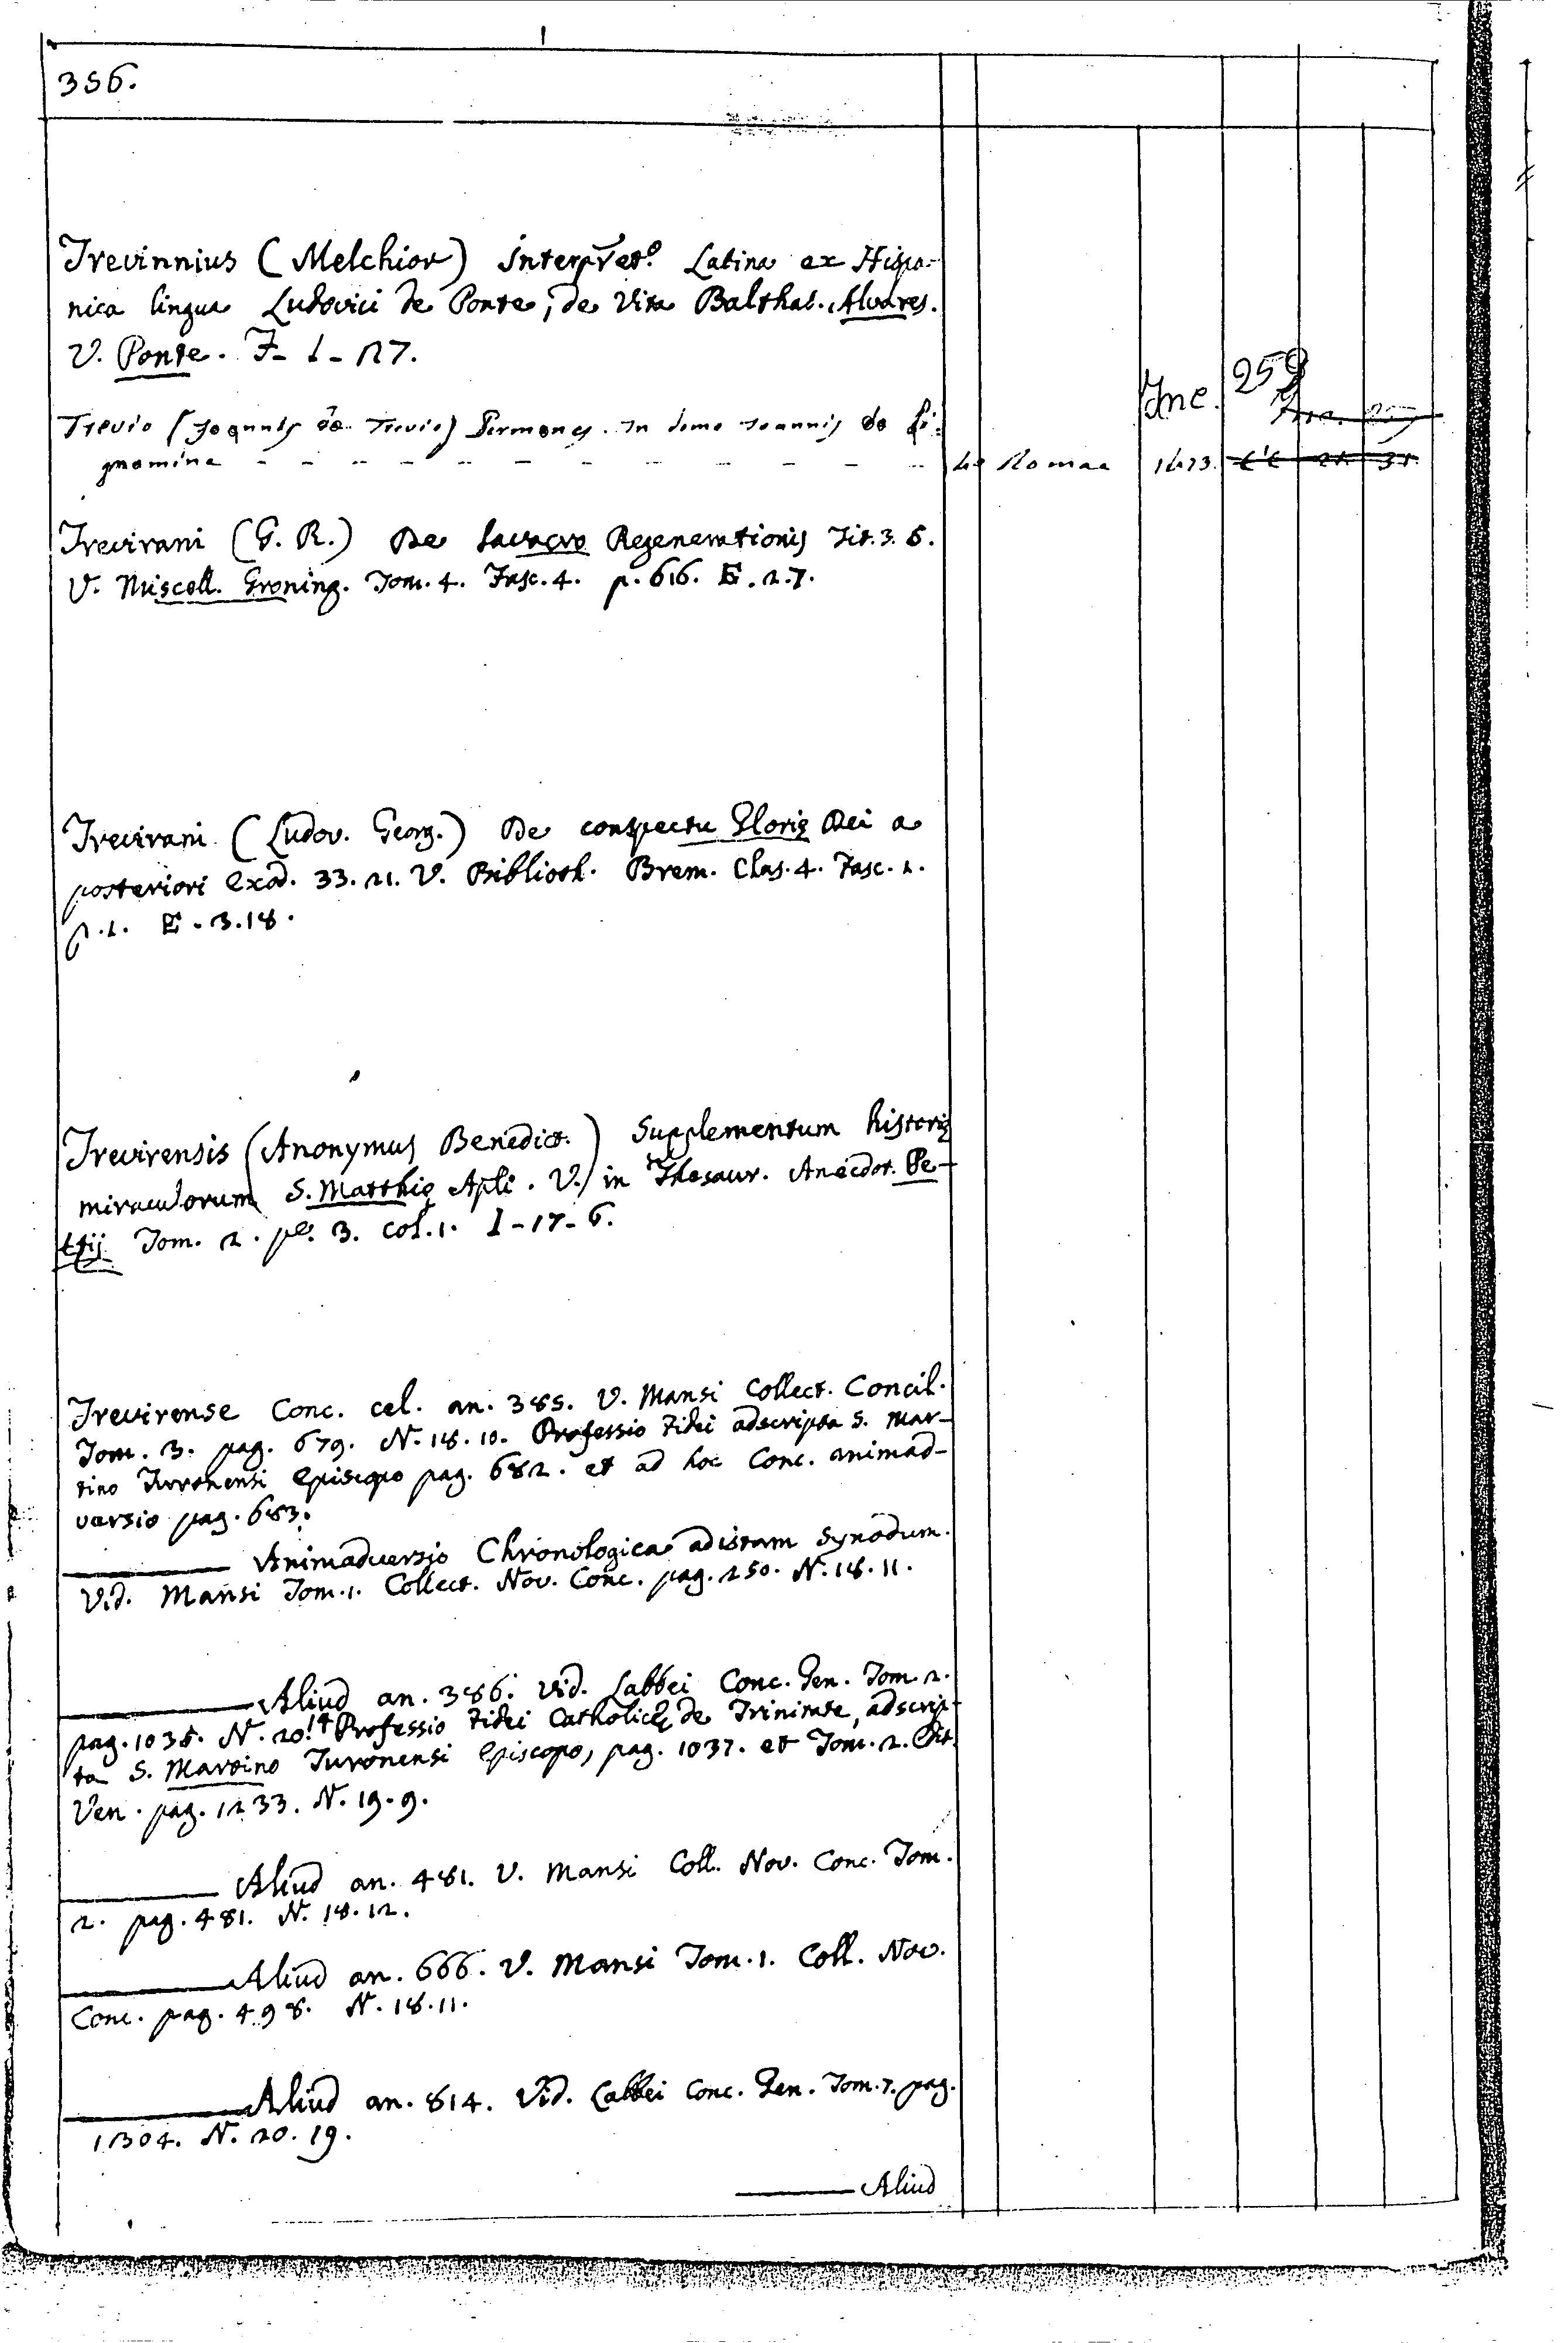 356.
Trevinnius (Melchior) Interpret.e Latina ex Hispa-
nica lingua Ludovici de Ponte, de Vita Balthas. Alvares.
V. Ponte. F-1-27.
Inc. 259
Trevio (Joannis de Trevio) Sermones. In domo Joannis de Li-
gnamine - - - - - - - - - - - - 4o Romae 1473.
Trevirani (G. R.) De Lavacro Regenerationis Tit. 3. 5.
V. Miscell. Groning. Tom. 4. Fasc. 4. p. 616. E. 2. 7.
Trevirani (Ludov. Georg.) De conspectu Glorię Dei a
posteriori Exod. 33. 21. V. Biblioth. Brem. Clas. 4. Fasc. 1.
p. 1. E. 3. 18.
Trevirensis (Anonymus Benedict.) Supplementum historię
miraculorum S. Matthię Apli. V. in Thesaur. Anecdot. Pe-
tzij Tom. 2. p. 3. col. 1. I-17-6.
Trevirense Conc. cel. an. 385. V. Mansi Collect. Concil.
Tom. 3. pag. 679. N. 18. 10. Professio Fidei adscripta S. Mar-
tino Turonensi Episcopo pag. 682. et ad hoc Conc. animad-
versio pag. 683.
——— Animadversio Chronologica ad istam Synodum.
Vid. Mansi Tom. 1. Collect. Nov. Conc. pag. 250. N. 18. 11.
——— Aliud an. 386. Vid. Labbei Conc. Gen. Tom. 2.
pag. 1035. N. 20. 14 Professio Fidei Catholicę de Trinitate, adscrip-
ta S. Martino Turonensi Episcopo, pag. 1037. et Tom. 2. Edit.
Ven. pag. 1233. N. 19. 9.
——— Aliud an. 481. V. Mansi Coll. Nov. Conc. Tom.
2. pag. 481. N. 18. 12.
——— Aliud an. 666. V. Mansi Tom. 1. Coll. Nov.
Conc. pag. 498. N. 18. 11.
——— Aliud an. 814. Vid. Labbei Conc. Gen. Tom. 7. pag.
1304. N. 20. 19.
——— Aliud